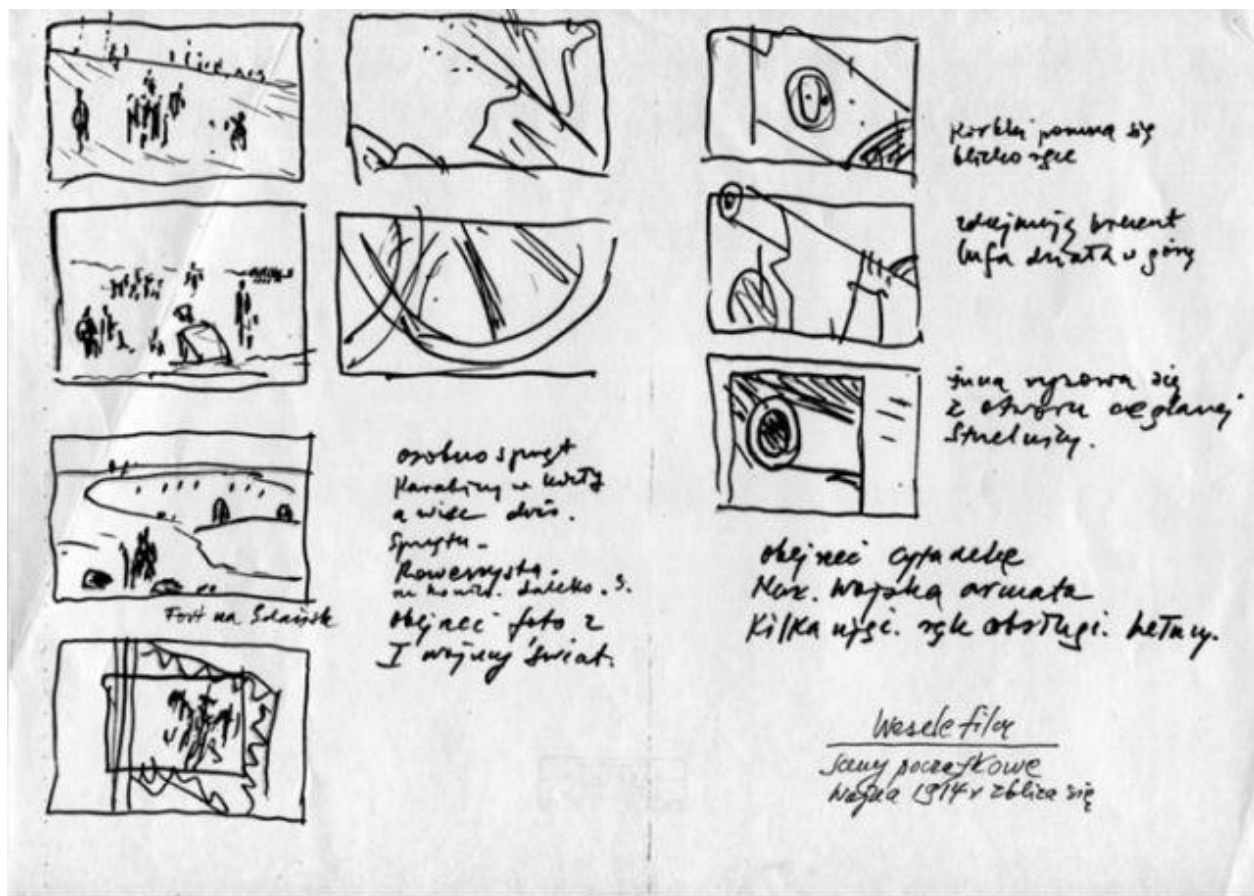 Fort na Gdańsk
osobno sprzęt
Karabiny w kozły
a więc dużo.
Sprzętu.
Rowerzysta.
daleko.
obejrzeć foto z
I wojny świat.
Korbki pomna się
blisko ręce
zdejmują brezent
lufa działa w górę
inna wysuwa się
z otworu ceglanej
strzelnicy.
obejrzeć cytadelę
Muz. Wojska armata
Kilka ujęć. rąk obsługi.
Wesele film
sceny początkowe
wojna 1914 r zbliża się